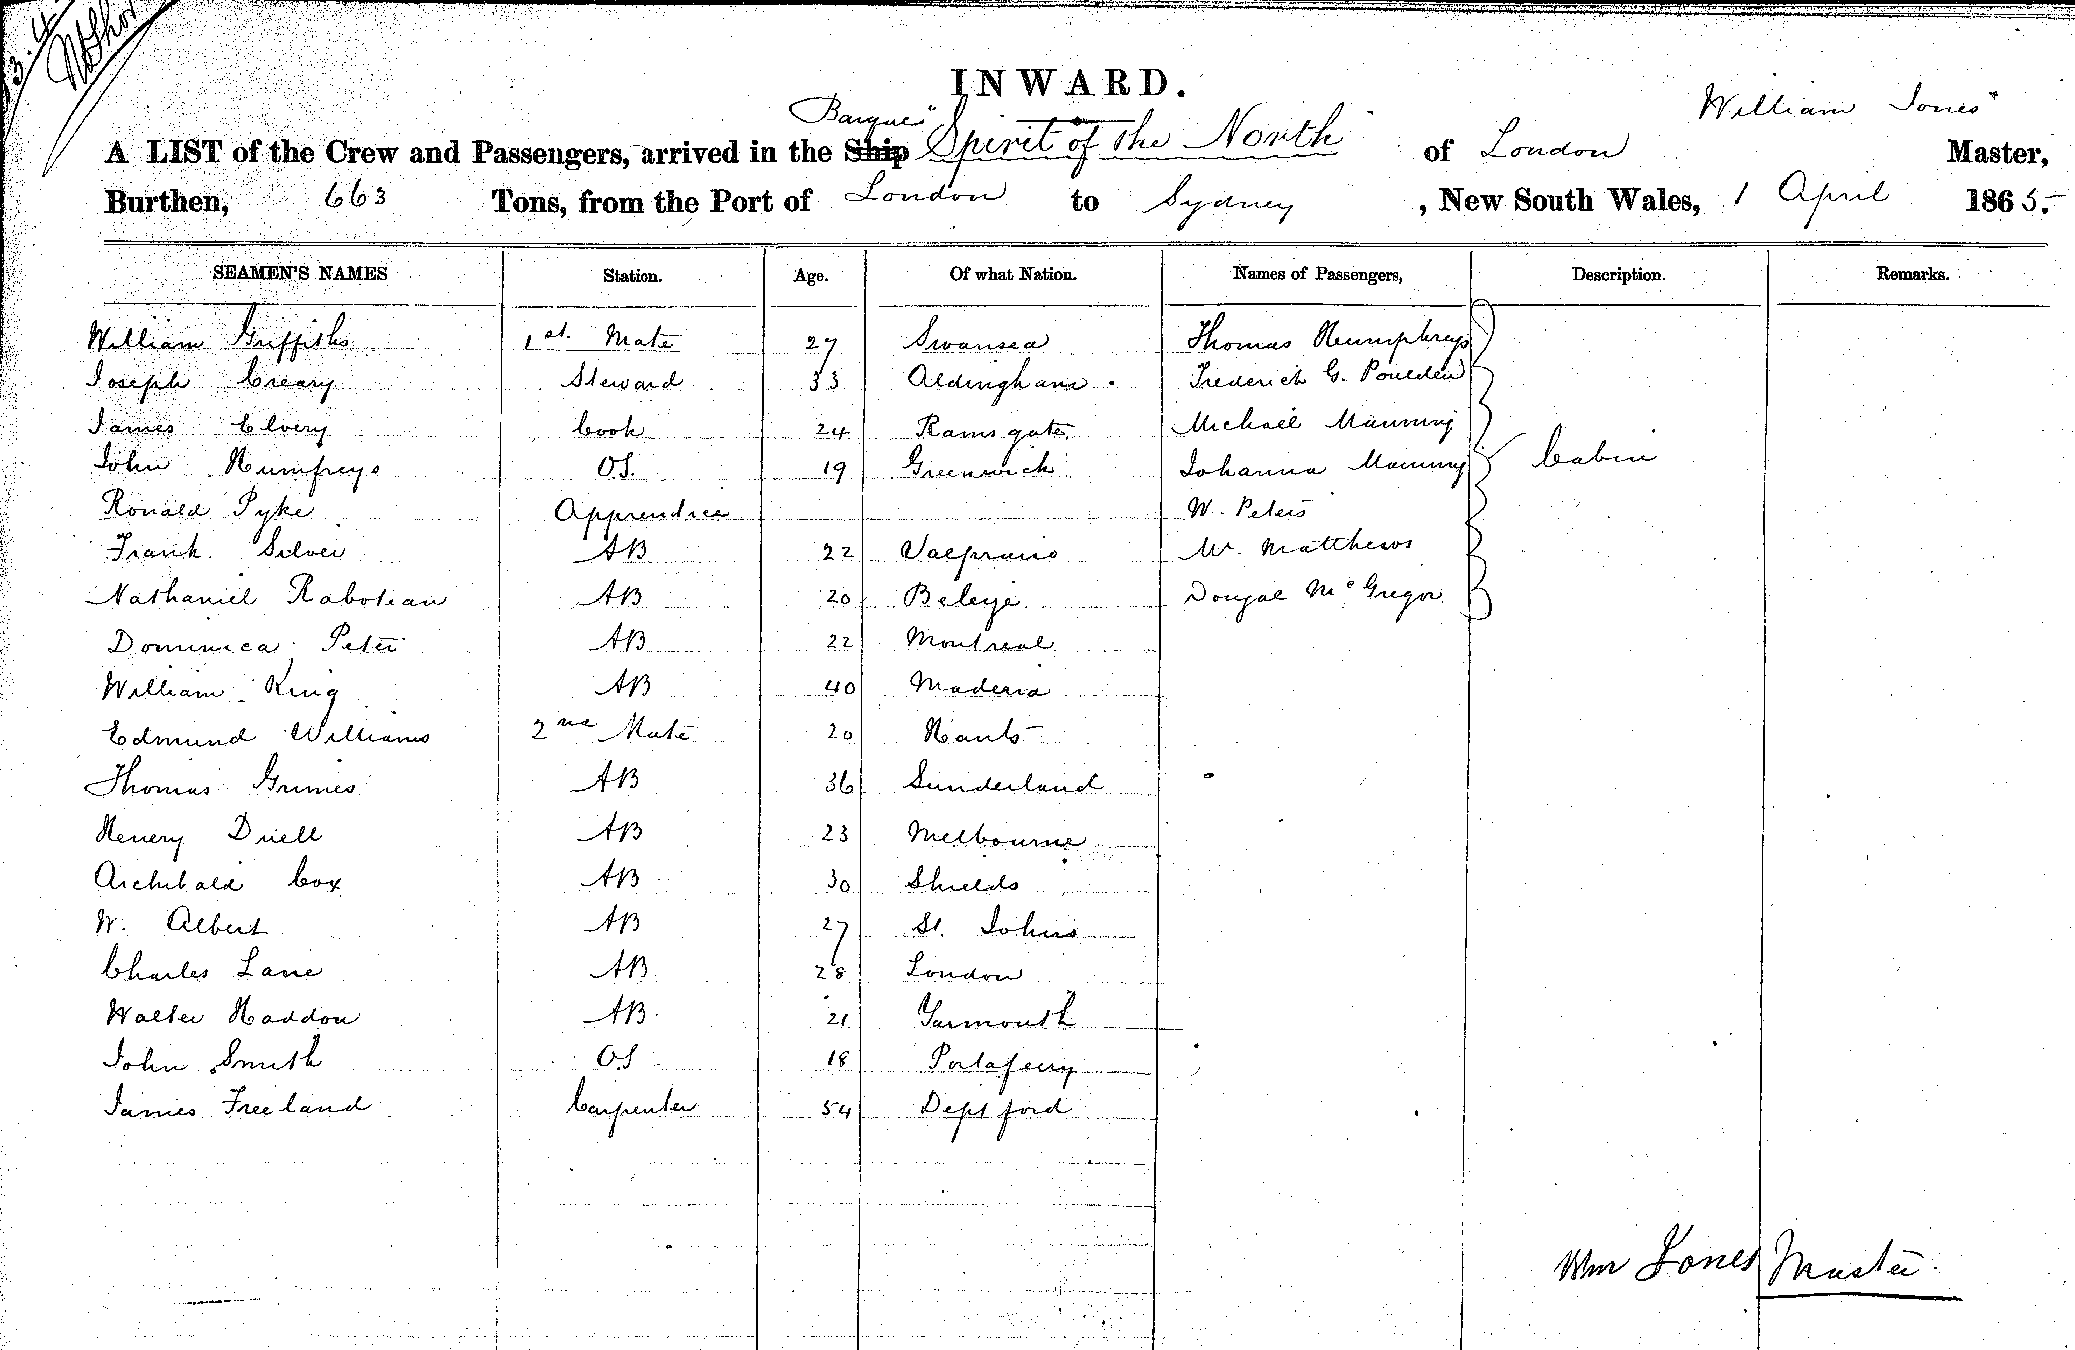 INWARD.
William Jones
Barque
A LIST of the Crew and Passengers, arrived in the Ship Spirit of the North of London Master,
Burthen, 663 Tons, from the Port of London to Sydney, New South Wales, 1 April 1865.
SEAMEN'S NAMES Station. Age. Of what Nation. Names of Passengers, Description. Remarks.
William Griffiths 1st. Mate 27 Swansea Thomas Humphreys
Joseph Creary Steward 33 Aldingham Frederick G. Poulden
James Elvery Cook 24 Ramsgate Michael Manning
John Humfreys OS. 19 Greenwich Johanna Manning Cabin
Ronald Pyke Apprentice W. Peters
Frank Silver AB 22 Valpraiso Mr. Matthews
Nathaniel Raboteau AB 20 Dougal McGregor
Dominica Peter AB 22 Montreal
William King AB 40 Maderia
Edmund Williams 2nd Mate 20 Hants
Thomas Grimes AB 36 Sunderland
Henery Driell AB 23 Melbourne
Archibald Cox AB 30 Shields
W. Albert AB 27 St. Johns
Charles Lane AB 28 London
Walter Haddon AB 21 Yarmouth
John Smith OS 18 Portaferry
James Freeland Carpenter 54 Deptford
Wm Jones Master.